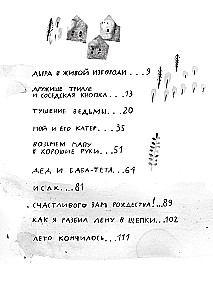 ДЫРА В ЖИВОЙ ИЗГОРОДИ...9
ДРУЖИЩЕ ТРИЛЛЕ
И СОСЕДСКАЯ КНОПКА...13
ТУШЕНИЕ ВЕДЬМЫ...20
НОЙ И ЕГО КАТЕР...35
ВОЗЬМЕМ ПАПУ
В ХОРОШИЕ РУКИ...51
ДЕД И БАБА-ТЁТЯ...64
ИСАК...81
СЧАСТЛИВОГО ВАМ РОЖДЕСТВА!...89
КАК Я РАЗБИЛ ЛЕНУ В ЩЕПКИ...102
ЛЕТО КОНЧИЛОСЬ...111